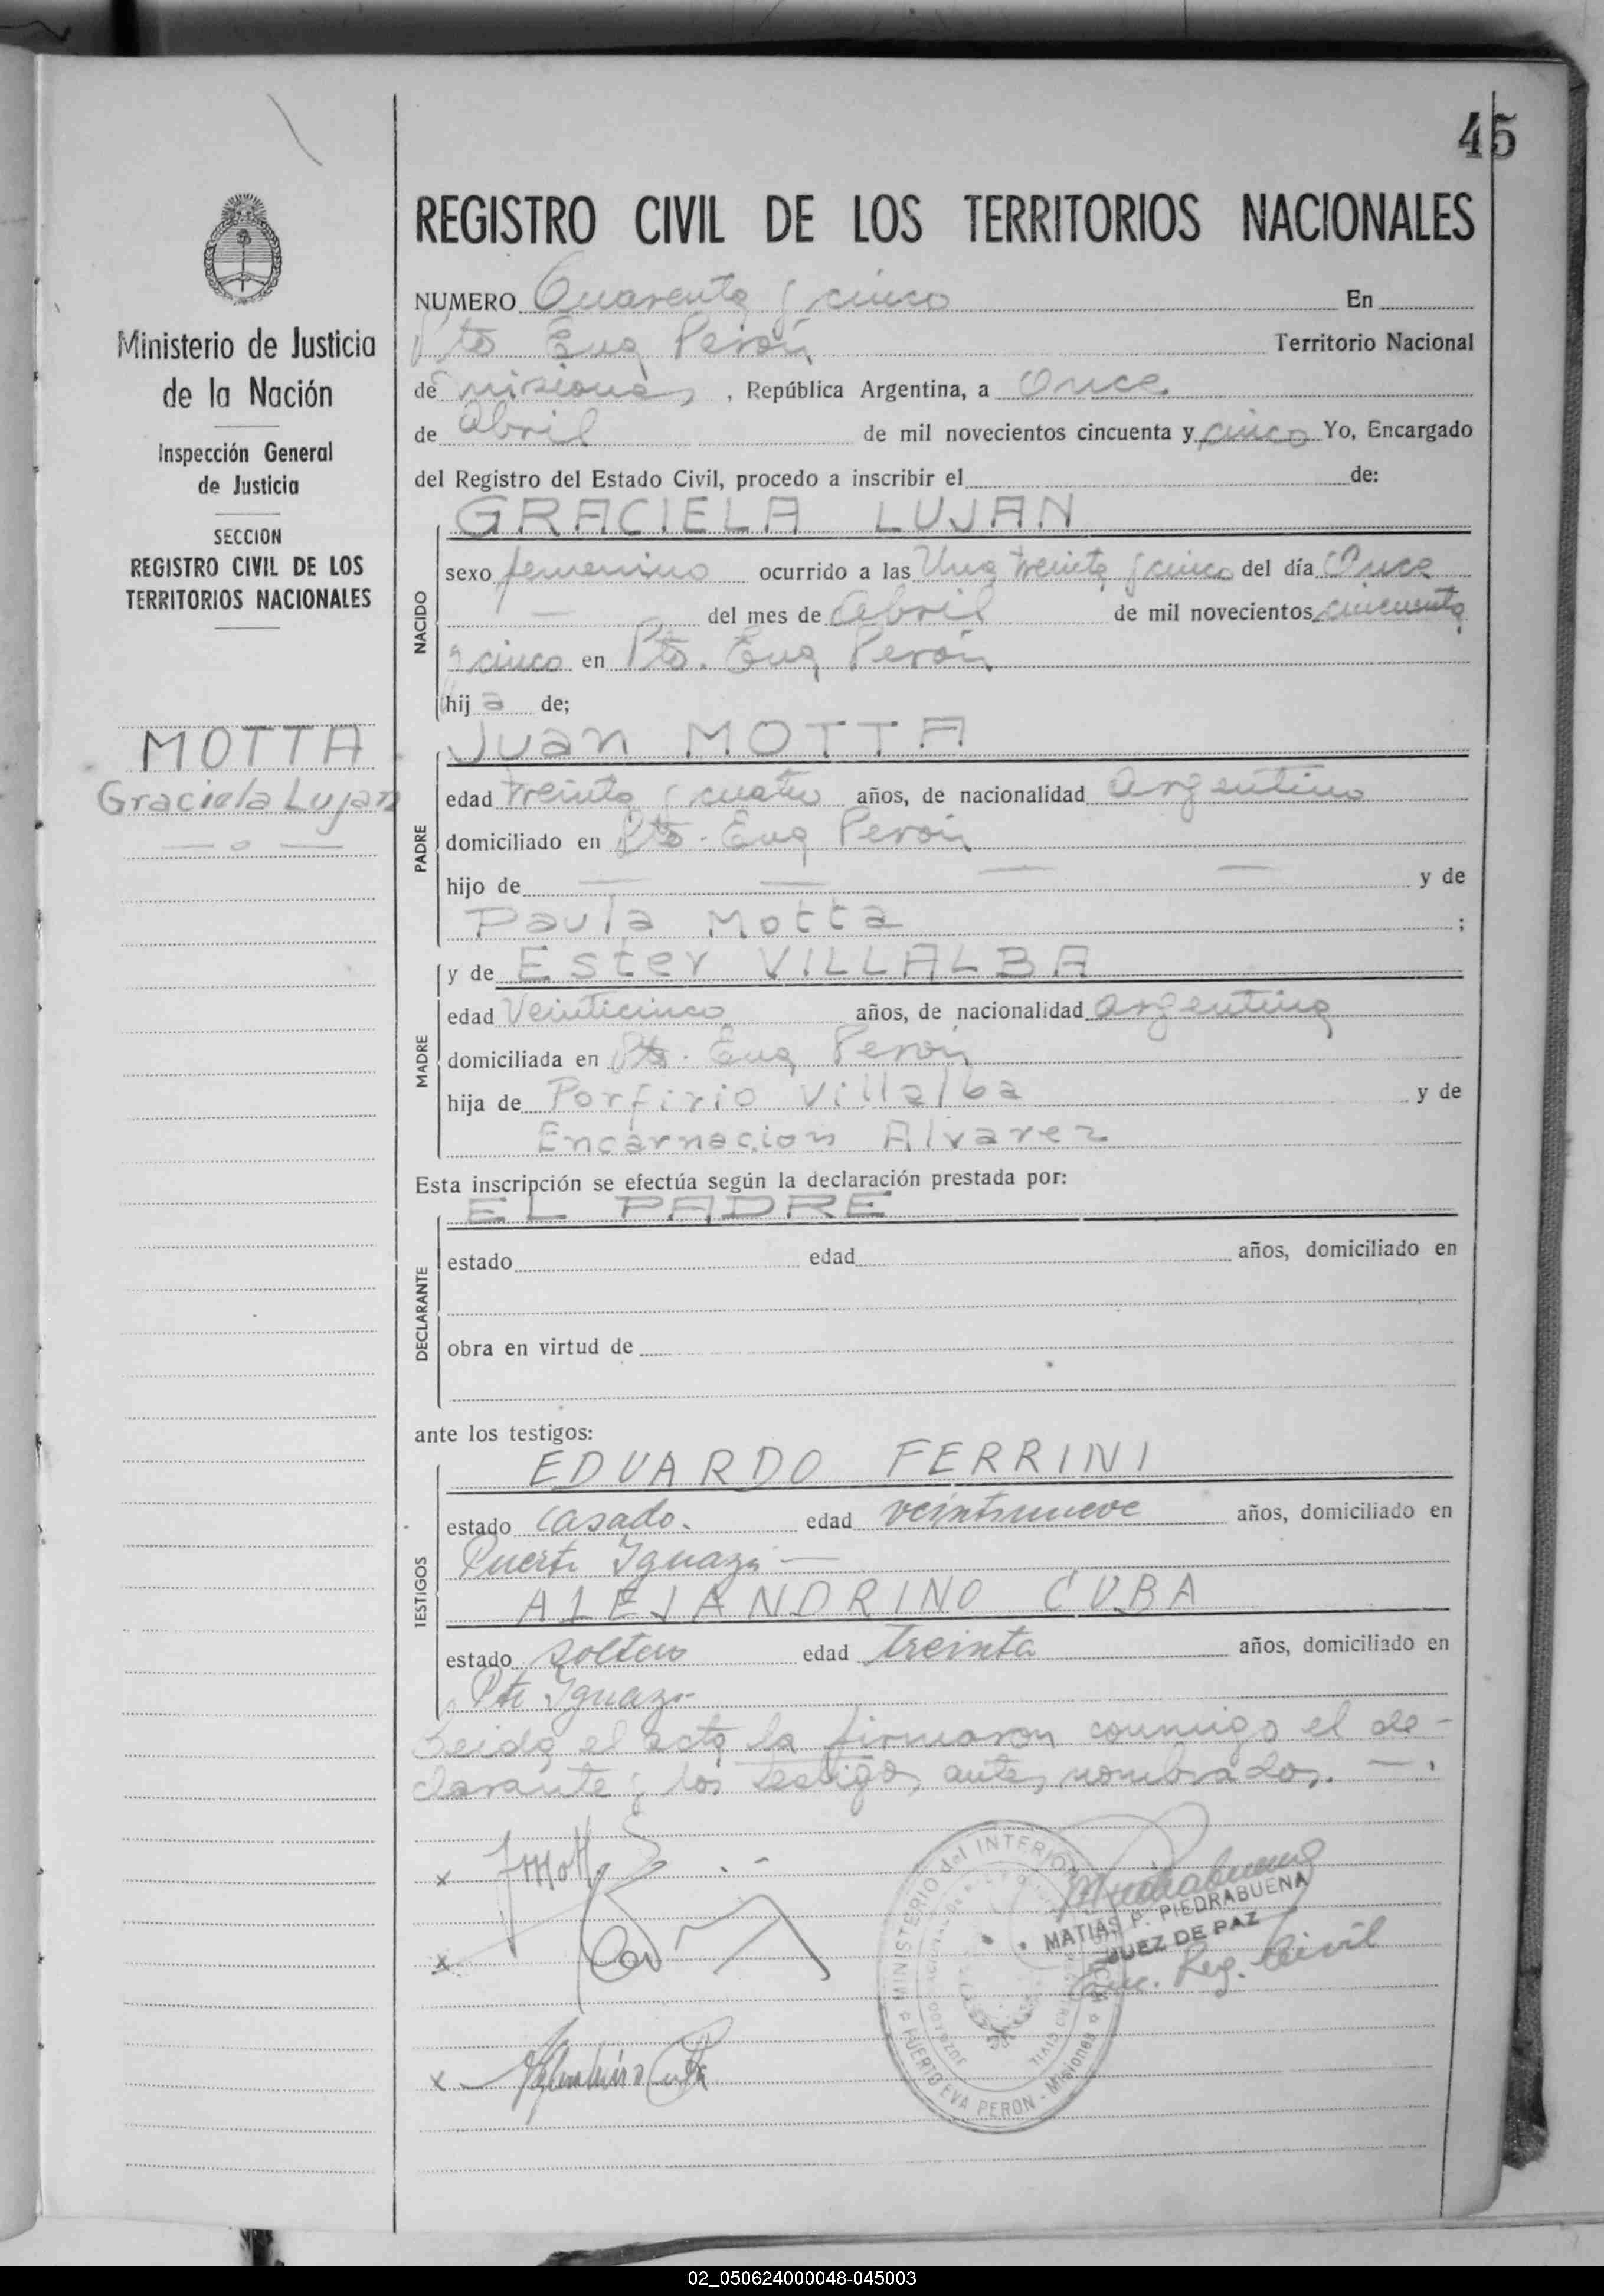 45
REGISTRO CIVIL DE LOS TERRITORIOS NACIONALES
Ministerio de Justicia
de la Nación
Inspección General
de Justicia
SECCION
REGISTRO CIVIL DE LOS
TERRITORIOS NACIONALES
MOTTA
Graciela Lujan
NUMERO Cuarenta y cinco En
Pto Eva Perón Territorio Nacional
de misiones, República Argentina, a Once
de Abril de mil novecientos cincuenta y cinco Yo, Encargado
del Registro del Estado Civil, procedo a inscribir el de:
GRACIELA LUJAN
NACIDO
sexo femenino ocurrido a las Una treinta y cinco del día Once
— del mes de Abril de mil novecientos cincuenta
y cinco en Pto. Eva Perón
hija de;
Juan MOTTA
PADRE
edad treinta y cuatro años, de nacionalidad Argentino
domiciliado en Pto. Eva Perón
hijo de — — — — y de
Paula Motta ;
y de Ester VILLALBA
MADRE
edad Veinticinco años, de nacionalidad Argentina
domiciliada en Pto. Eva Perón
hija de Porfirio Villalba y de
Encarnacion Alvarez
Esta inscripción se efectúa según la declaración prestada por:
EL PADRE
DECLARANTE
estado edad años, domiciliado en
obra en virtud de
ante los testigos:
EDUARDO FERRINI
TESTIGOS
estado casado. edad veintinueve años, domiciliado en
Puerto Iguazú —
ALEJANDRINO CUBA
estado soltero edad treinta años, domiciliado en
Pto Iguazú
Leida el acta la firmaron conmigo el de-
clarante y los testigos antes nombrados. —.
x JMott
x
x
MINISTERIO del INTERIOR
PUERTO EVA PERON - Misiones
MATIAS P. PIEDRABUENA
JUEZ DE PAZ
Enc. Reg. Civil
02_050624000048-045003